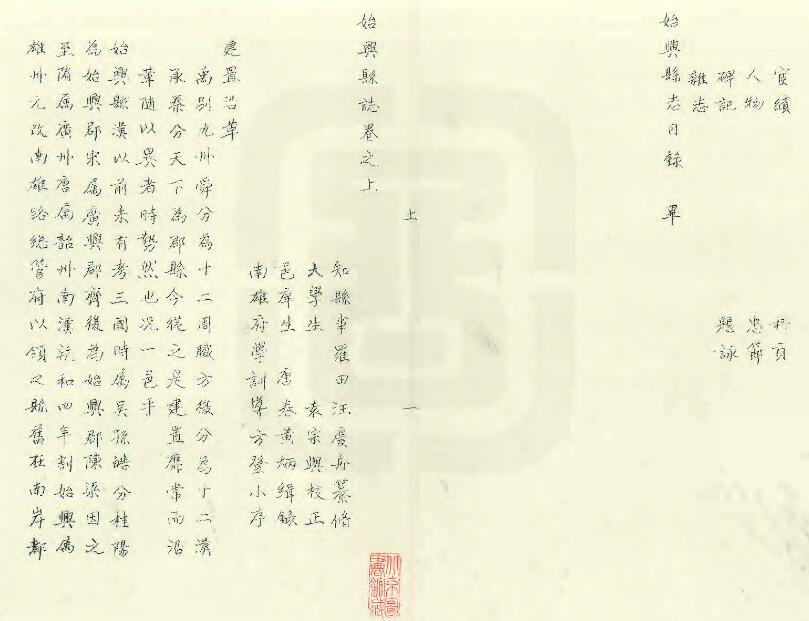 宦績 科貢
人物 忠節
碑記 題詠
雜志
始興縣志目錄 畢
上 一
始興縣誌卷之上
知縣事羅田汪慶舟纂修
大學生 袁宗興校正
邑庠生 唐卷黃炳緝錄
南雄府學訓導方登小序
建置沿革
禹別九州舜分為十二周職方復分為十二漢
承秦分天下為郡縣今從之是建置靡常而沿
革隨以異者時勢然也況一邑乎
始興縣漢以前未有考三國時屬吳孫皓分桂陽
為始興郡宋屬廣興郡齊復為始興郡陳梁因之
至隋屬廣州唐屬韶州南漢乾和四年割始興屬
雄州元改南雄路總管府以領之縣舊在南岸都